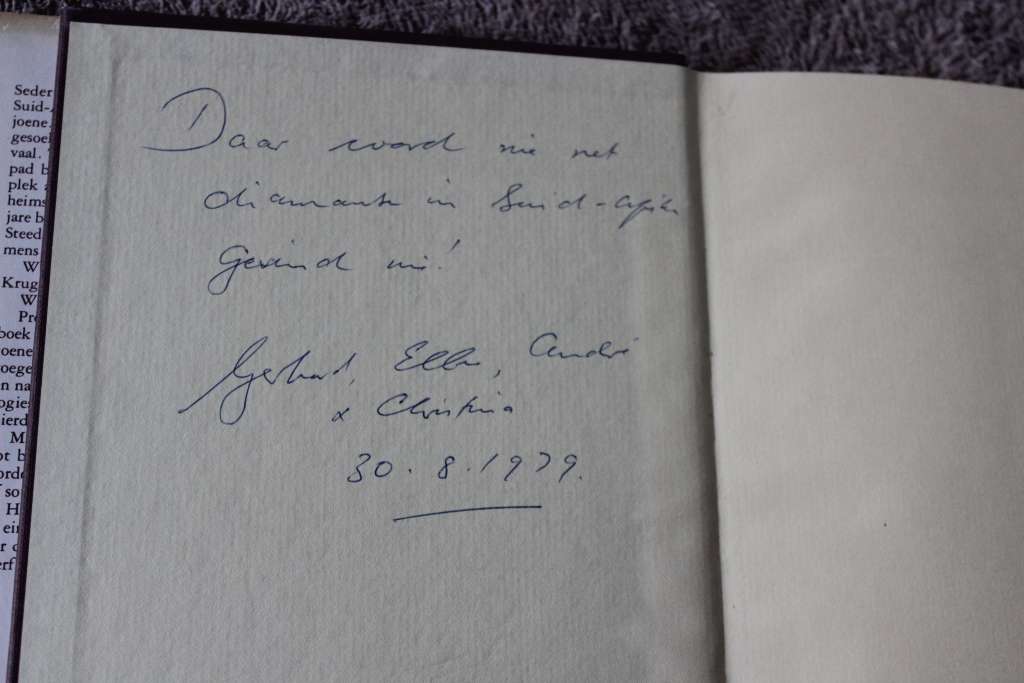 Seder
Suid-
joene.
gesoe
vaal.
pad b
plek
heims
jare b
Steed
mens
W
Krug
W
Pr
boek
oene
oege
n na
ogie
ierd
M
ot b
orde
so
H
ei
r
erf
Daar word nie net
diamante in Suid-Afrika
Gevind nie!
Gerhard, Elke, André
& Christina
30.8.1979.